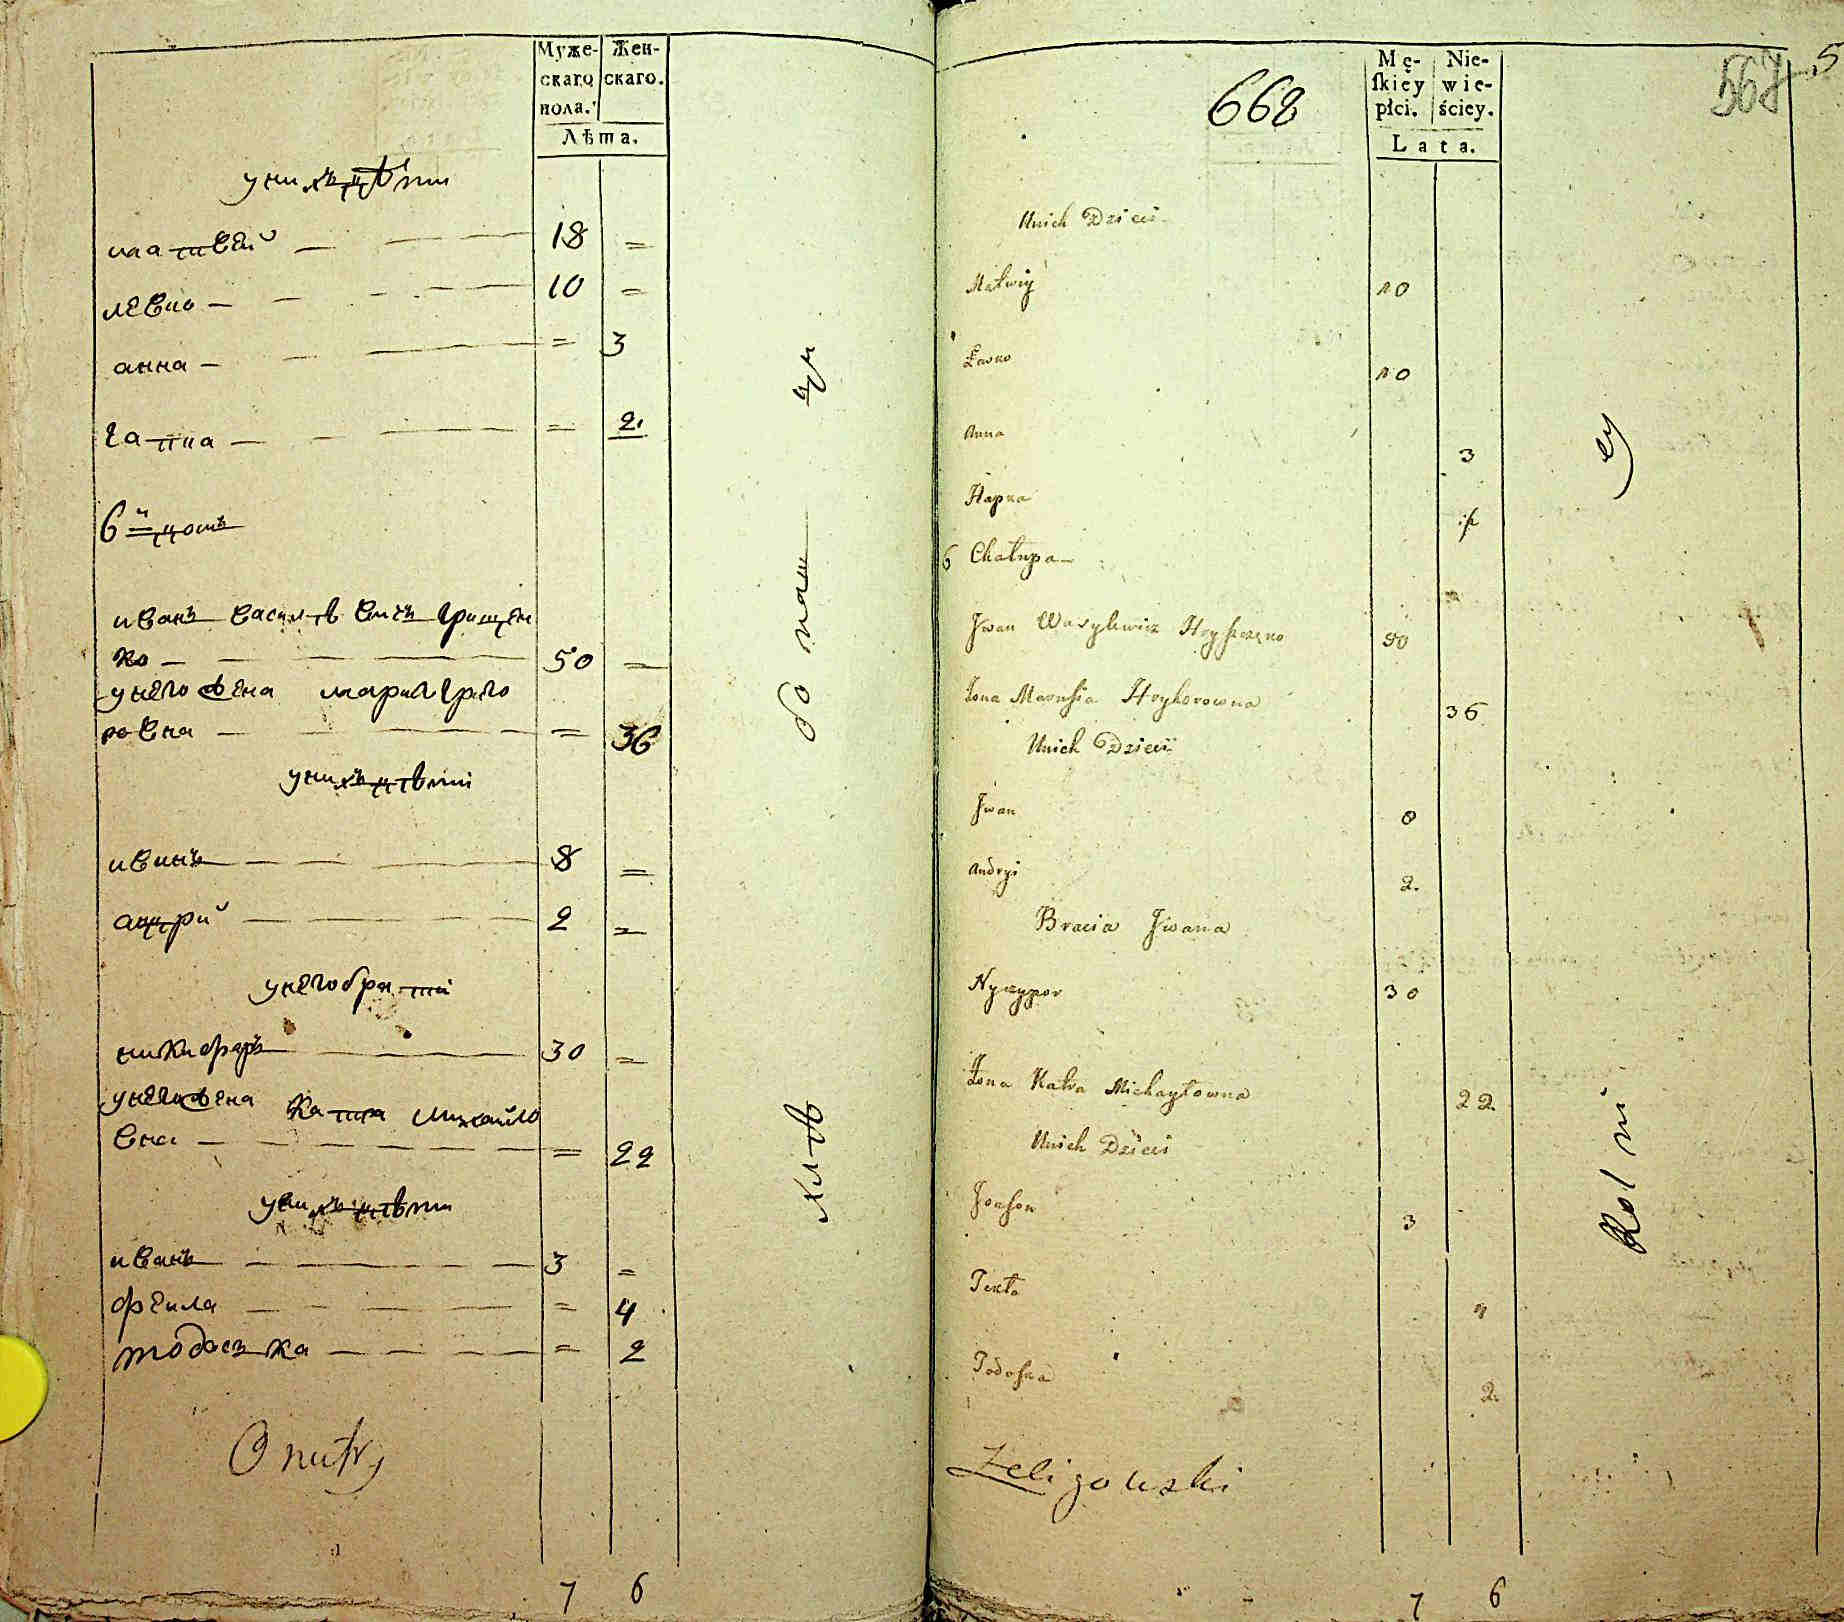 Муже-
скаго
пола.
Жен-
скаго.
Лѣта.
у нихъ дѣти
матвей 18 =
левко 10 =
анна = 3
гапка = 2.
6й домъ
иванъ василѣвичъ грищен
ко 50 =
у него жена мария григо
ровна = 36
у нихъ дѣти
иванъ 8 =
андрий 2 =
у него брати
никифоръ 30 =
у него жена катра михайло
вна = 22
у нихъ дѣти
иванъ 3 =
фекла = 4
тодоска = 2
Onufry
7 6
хлѣ бо паш цы
668
Mę-
skiey
płci.
Nie-
wie-
ściey.
Lata.
567
5
Unich Dzieci
Matwiy 10
Łavko 10
Anna 3
Hapka
6 Chałupa
Jwan Wasylewicz Hryszczęko 50
Żona Marusia Hryhorowna 36
Unich Dzieci
Jwan 8
Andryi 2.
Bracia Jwana
Nyczypor 30
Żona Katra Michayłowna 22
Unich Dzieci
3
Tekla 4
Todoska 2.
Zeligowski
7 6
Rol ni cy